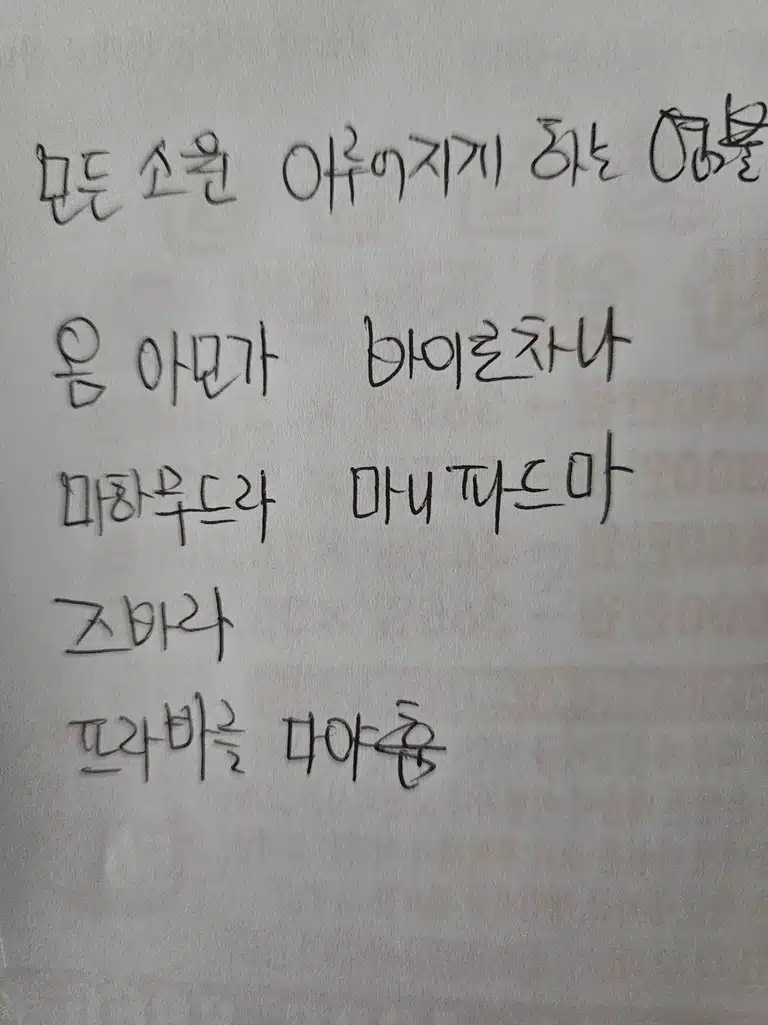 모든 소원 이루어지게 하는 염불
옴 아모가 바이로차나
마하무드라 마니 파드마
즈바라
프라바를 타야훔